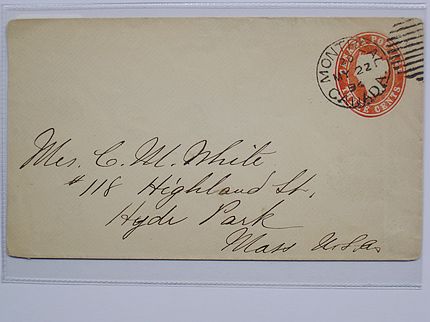 MONT
CANADA
22
CANADA POSTAGE
THREE CENTS
Mrs. C. M. White
# 118 Highland St,
Hyde Park
Mass U.S.A.